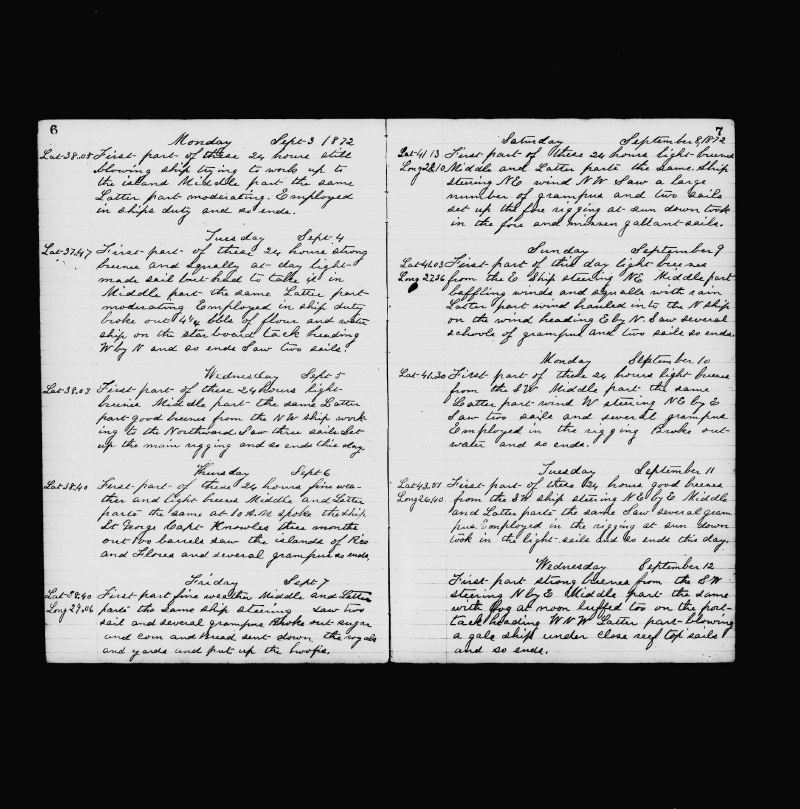 6
Monday Sept 3 1872
Lat 38.05 First part of these 24 hours still
blowing ship trying to work up to
the island Middle part the same
Latter part moderating. Employed
in ships duty and so ends.
Tuesday Sept 4
Lat 37.47 First part of these 24 hours strong
breeze and squally at day light
made sail but had to take it in
Middle part the same Latter part
moderating Employed in ship duty
broke out 4 1/4 bbls of flour and water
ship on the starboard tack heading
W by N and so ends Saw two sails.
Wednesday Sept 5
Lat 38.03 First part of these 24 hours light
breeze Middle part the same Latter
part good breeze from the NW ship work-
ing to the Northward. Saw three sails. Set
up the main rigging and so ends this day
Thursday Sept 6
Lat 38.40 First part of these 24 hours fine wea-
ther and light breeze Middle and Latter
parts the same at 10 A.M. spoke the ship
St George Capt Knowles three months
out 100 barrels saw the islands of Rico
and Flores and several grampus so ends.
Friday Sept 7
Lat 38.40 First part fine weather Middle and Latter
Long 29.06 parts the same ship steering saw two
sail and several grampus Broke out sugar
and corn and bread sent down the royals
and yards and put up the
7
Saturday September 8, 1872
Lat 41 13 First part of these 24 hours light breeze
Long 28.10 Middle and Latter parts the same. Ship
steering NE wind NW Saw a large
number of grampus and two sails
set up the fore rigging at sun down took
in the fore and mizzen gallant sails.
Sunday September 9
Lat 41.03 First part of this day light breeze
Long 27.26 from the E Ship steering NE Middle part
baffling winds and squalls with rain
Latter part wind hauled into the N ship
on the wind heading E by N. Saw several
schools of grampus and two sails so ends.
Monday September 10
Lat 41.30 First part of these 24 hours light breeze
from the SW Middle part the same
Latter part wind W steering NE by E
Saw two sails and several grampus
Employed in the rigging Broke out
water and so ends.
Tuesday September 11
Lat 43.01 First part of these 24 hours good breeze
Long 26.40 from the SW ship steering NE by E Middle
and Latter parts the same Saw several gram
pus. Employed in the rigging at sun down
took in the light sails and so ends this day.
Wednesday September 12
First part strong breeze from the SW
steering N by E Middle part the same
with fog at noon luffed too on the port
tack heading WNW Latter part blowing
a gale ship under close reef top sails
and so ends.